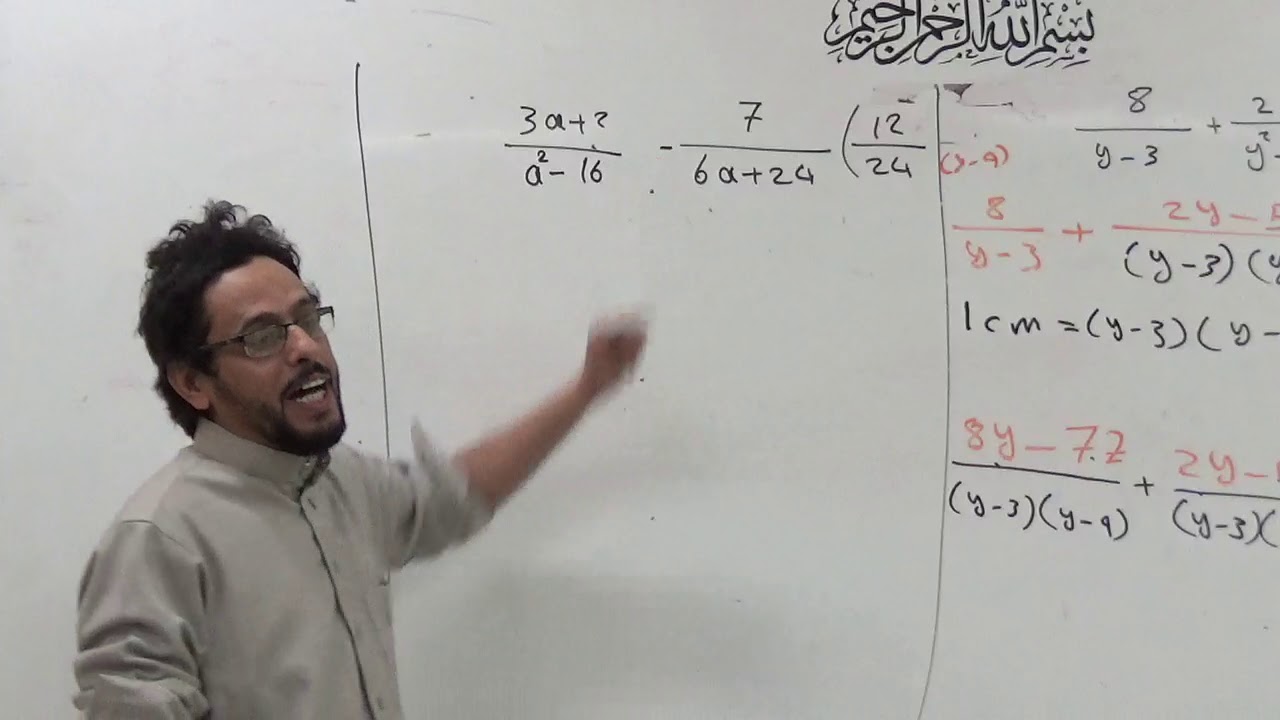 بسم الله الرحمن الرحيم
3a+2 / a²-16 - 7 / 6a+24 (12/24
8 / y-3 + 2 / y²-
(y-9)
8 / y-3 + 2y- / (y-3)(y
lcm = (y-3)(y-
8y-72 / (y-3)(y-9) + 2y- / (y-3)(